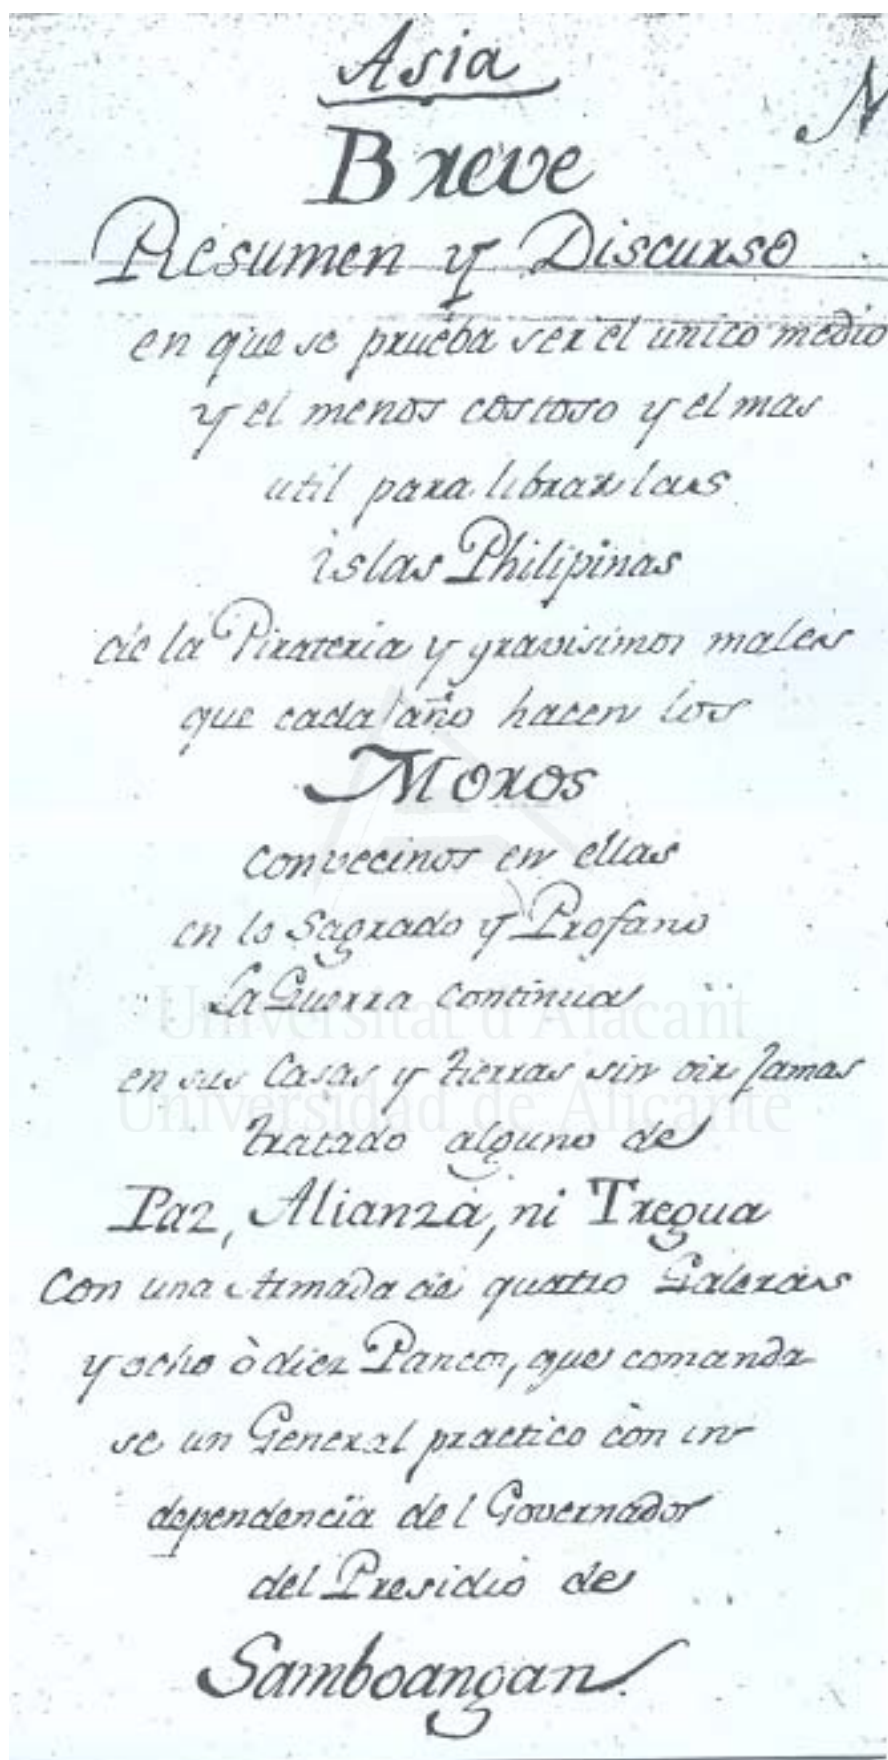 Asia
N
Breve
Resumen y Discurso
en que se prueba ser el unico medio
y el menos costoso y el mas
util para librar las
islas Philipinas
de la Pirateria y gravisimos males
que cada año hacen los
Moros
convecinos en ellas
en lo Sagrado y Profano
La Guerra continua
Universitat d'Alacant
en sus Casas y tierras sin oir Jamas
Universidad de Alicante
tratado alguno de
Paz, Alianza, ni Tregua
Con una Armada de quatro Galeras
y ocho ò diez Pancos, que comanda
se un General practico con in
dependencia del Governador
del Presidio de
Samboangan.